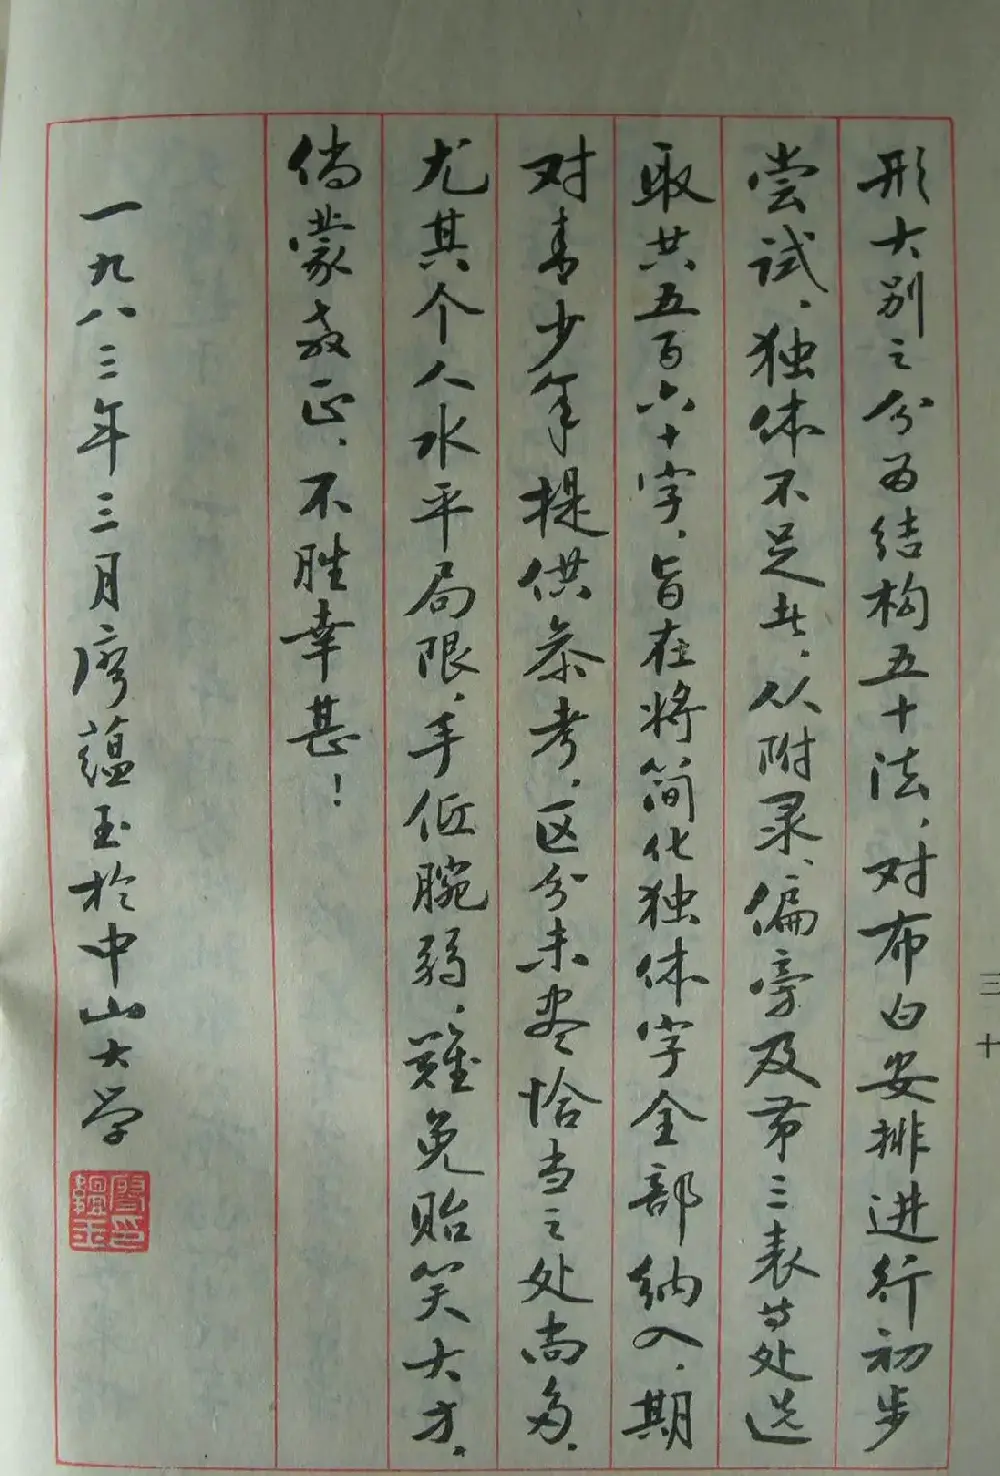 形大别之分为结构五十法，对布白安排进行初步
尝试，独体不足者，从附录、偏旁及第三表等处选
取共五百六十字，旨在将简化独体字全部纳入，期
对青少年提供参考，区分未尽恰当之处尚多，
尤其个人水平局限，手低腕弱，难免贻笑大方，
倘蒙教正，不胜幸甚！
一九八三年三月廖蕴玉於中山大学
廖印蕴玉
三十